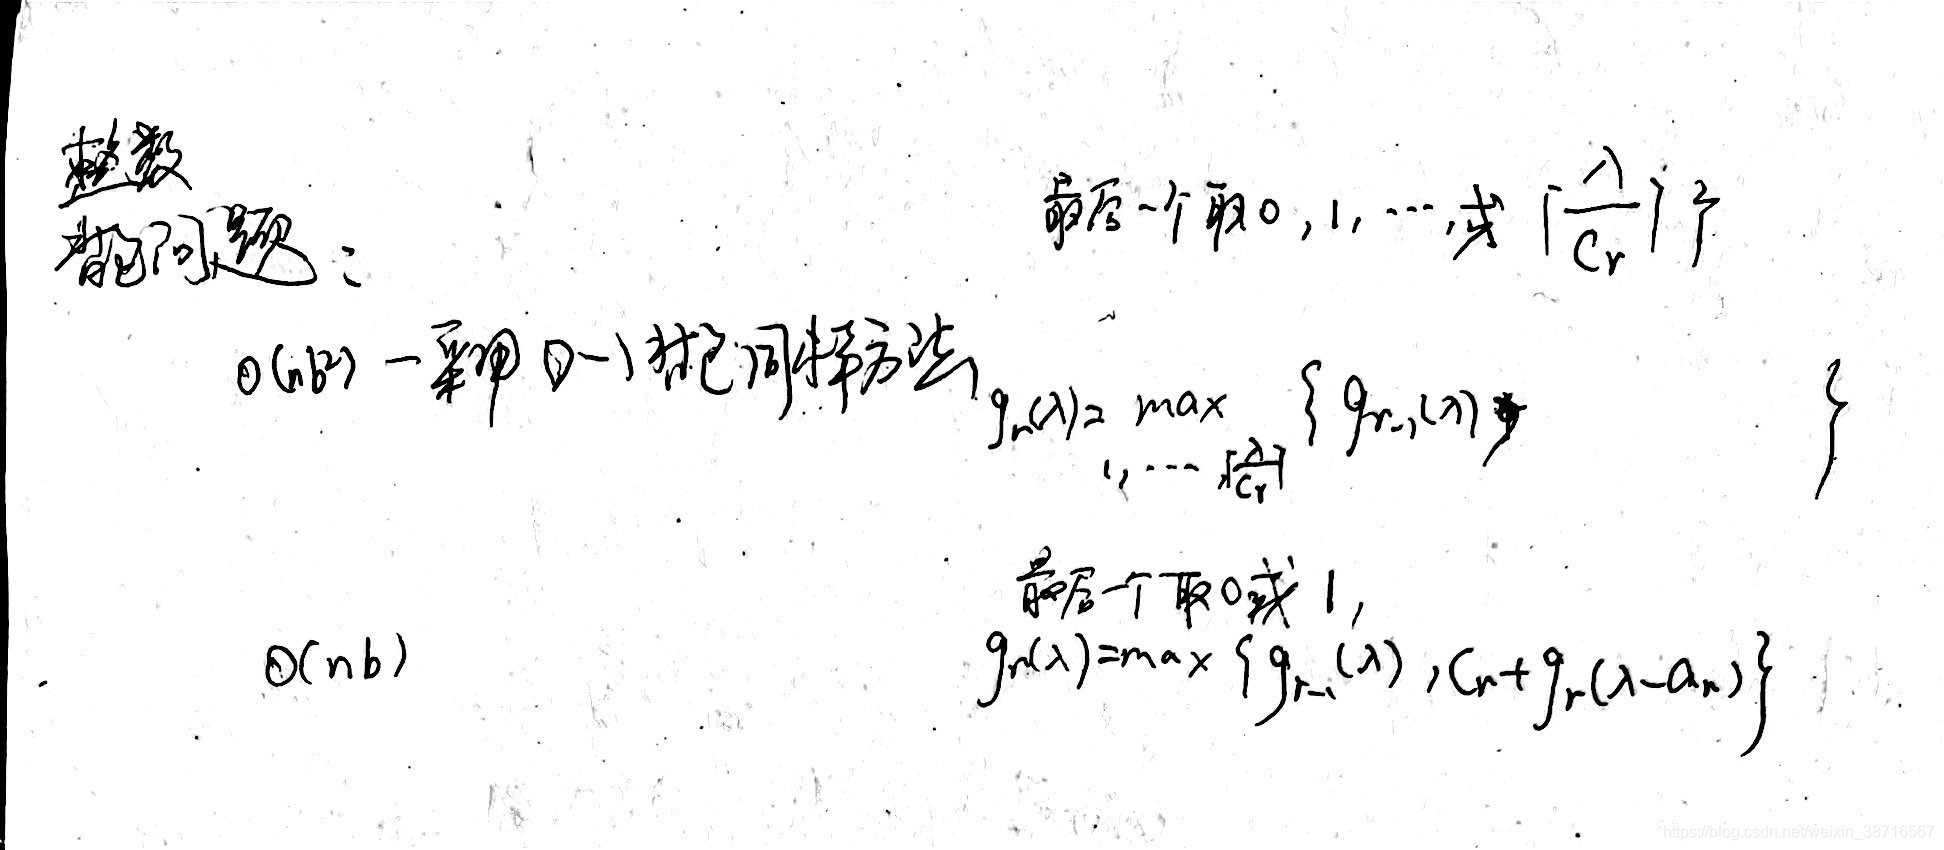 整数
背包问题:
最后一个取0,1,…,或⌈λ/Cr⌉}
O(nb²) — 采用0-1背包同样方法,
gr(λ)= max {gr-1(λ) }
1,…⌈λ/Cr⌉
最后一个取0或1,
O(nb)
gr(λ)=max{gr-1(λ),Cr+gr(λ-ar)}
https://blog.csdn.net/weixin_38716567